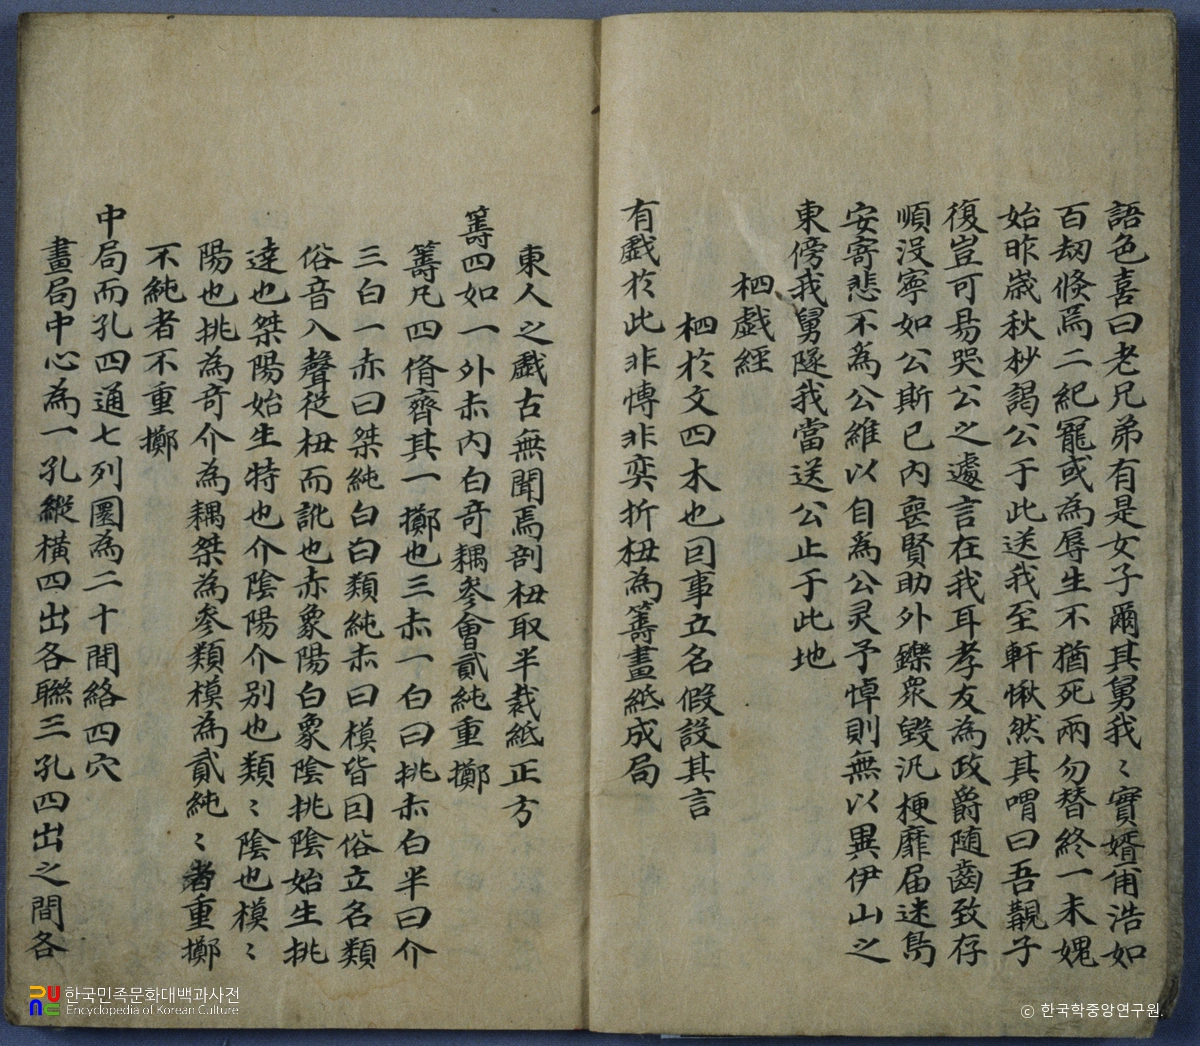 語色喜曰老兄弟有是女子爾其舅我〻實婿甫浩如
百刼倏焉二紀寵或為辱生不猶死兩勿替終一未媿
始昨歲秋杪謁公于此送我至軒愀然其喟曰吾覯子
復豈可易哭公之遽言在我耳孝友為政爵随齒致存
順沒寧如公斯已內喪賢助外鑠衆毀汎梗靡届迷島
安寄悲不為公維以自為公灵予悼則無以異伊山之
東傍我舅隧我當送公止于此地
柶戲經
柶於文四木也囙事立名假設其言
有戲於此非愽非奕折杻為籌畫紙成局
東人之戲古無聞焉剖杻取半裁紙正方
籌四如一外赤內白奇耦參會貳純重擲
籌凡四脩齊其一擲也三赤一白曰挑赤白半曰介
三白一赤曰桀純白曰類純赤曰模皆囙俗立名類
俗音入聲從杻而訛也赤象陽白象陰挑陰始生挑
達也桀陽始生特也介陰陽介别也類〻陰也模〻
陽也挑為奇介為耦桀為參類模為貳純〻者重擲
不純者不重擲
中局而孔四通七列圜為二十間絡四穴
畫局中心為一孔縱橫四出各聯三孔四出之間各
한국민족문화대백과사전
Encyclopedia of Korean Culture
© 한국학중앙연구원.